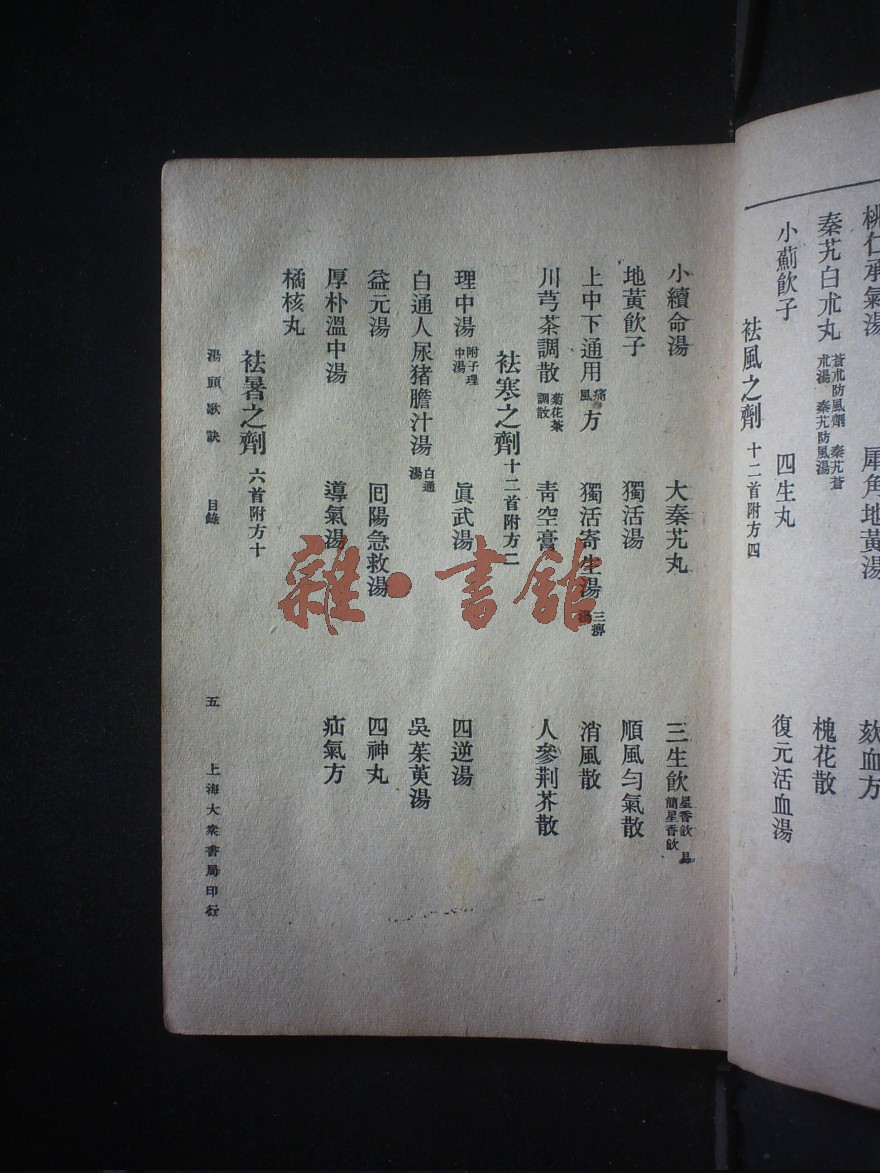 桃仁承氣湯　犀角地黃湯　欬血方
秦艽白朮丸 蒼朮防風劑 秦艽蒼朮湯 秦艽防風湯　槐花散
小薊飲子　四生丸　復元活血湯
祛風之劑 十二首附方四
小續命湯　大秦艽丸　三生飲 星香飲 易簡星香飲
地黃飲子　獨活湯　順風勻氣散
上中下通用痛風方　獨活寄生湯 三痹湯　消風散
川芎茶調散 菊花茶調散　靑空膏　人參荆芥散
祛寒之劑 十二首附方二
理中湯 附子理中湯　眞武湯　四逆湯
白通人尿猪膽汁湯 白通湯　吳茱萸湯
益元湯　囘陽急救湯　四神丸
厚朴溫中湯　導氣湯　疝氣方
橘核丸
祛暑之劑 六首附方十
湯頭歌訣　目錄　五　上海大衆書局印行
雜·書館